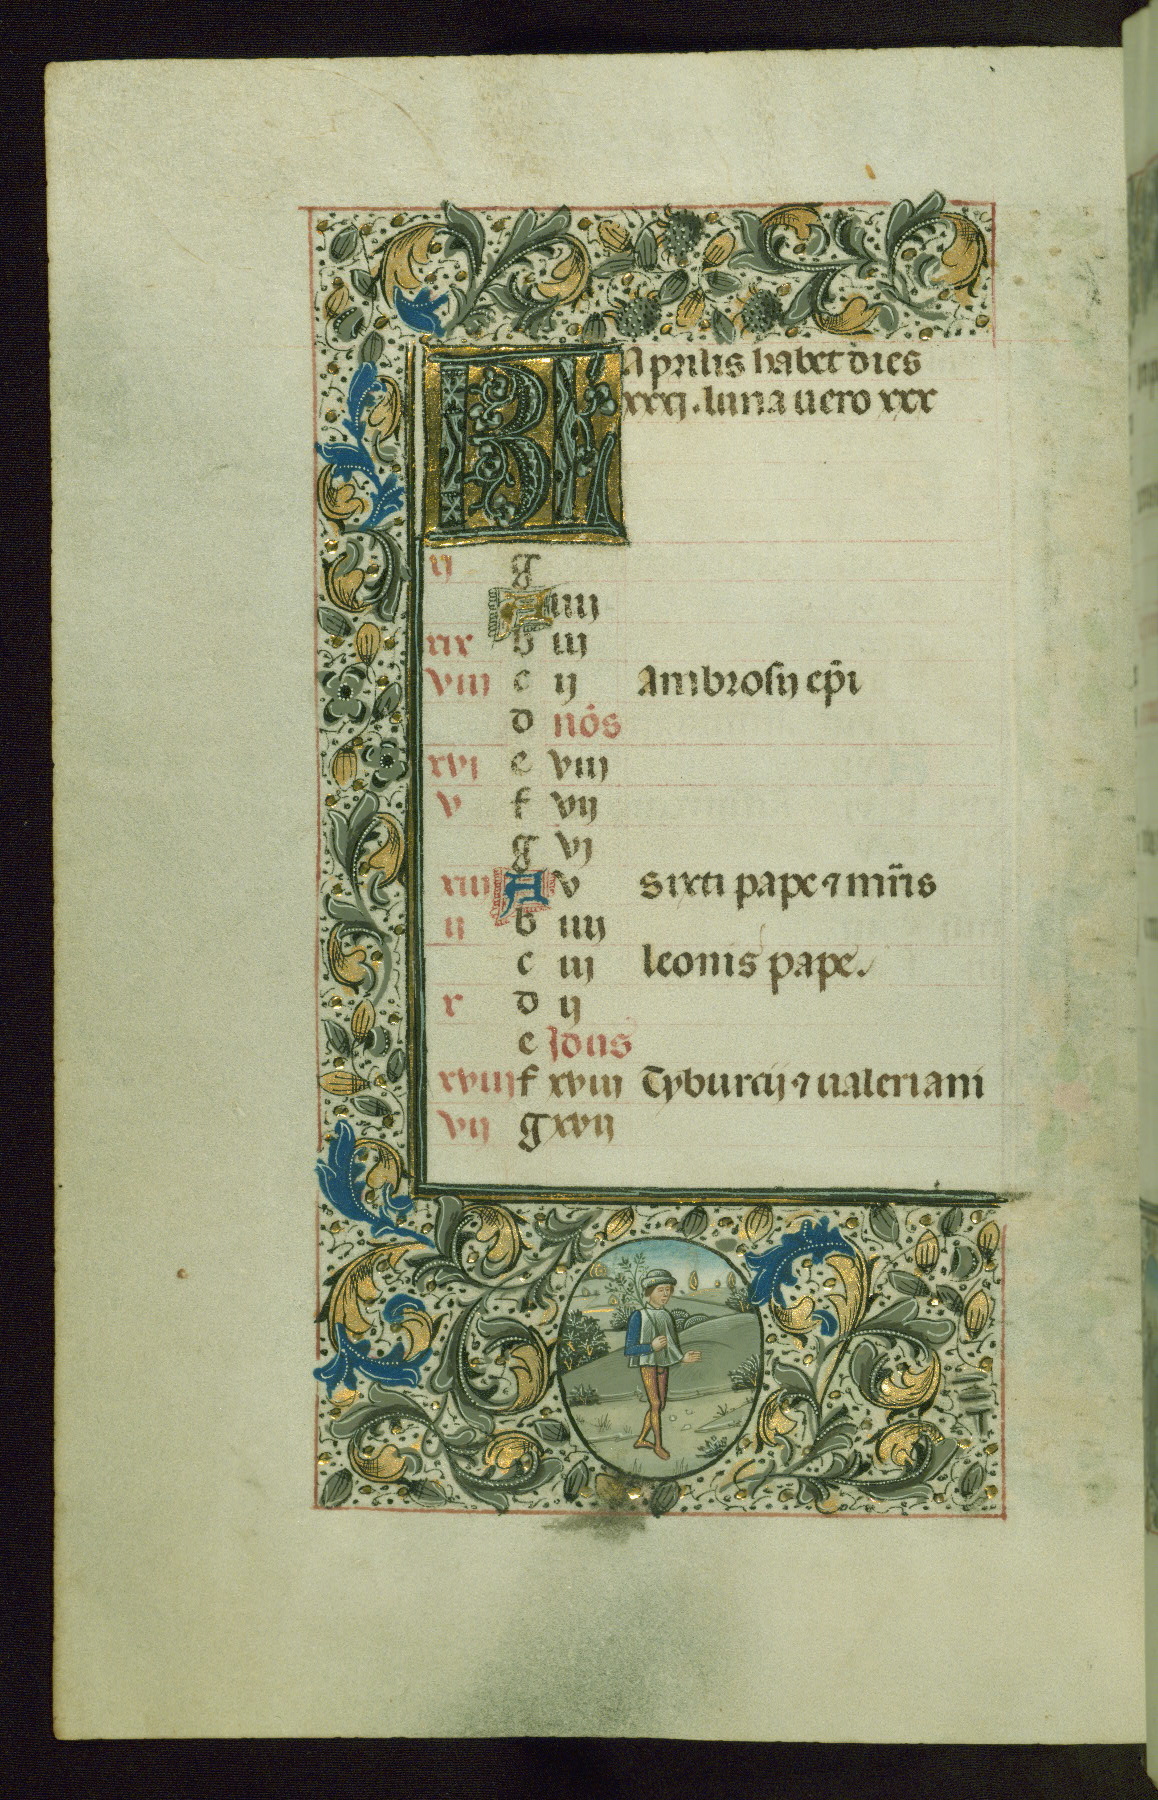 KL Aprilis habet dies
xxxj . luna uero xxx
ij g
A iiij
xix b iij
viij c ij Ambrosij ep̄i
d nōs
xvj e viij
v f vij
g vj
xiij A v Sixti pape ⁊ mr̄is
ij b iiij
c iij leonis pape.
x d ij
e Jdus
xviij f xviij Tyburcij ⁊ ualeriani
vij g xvij